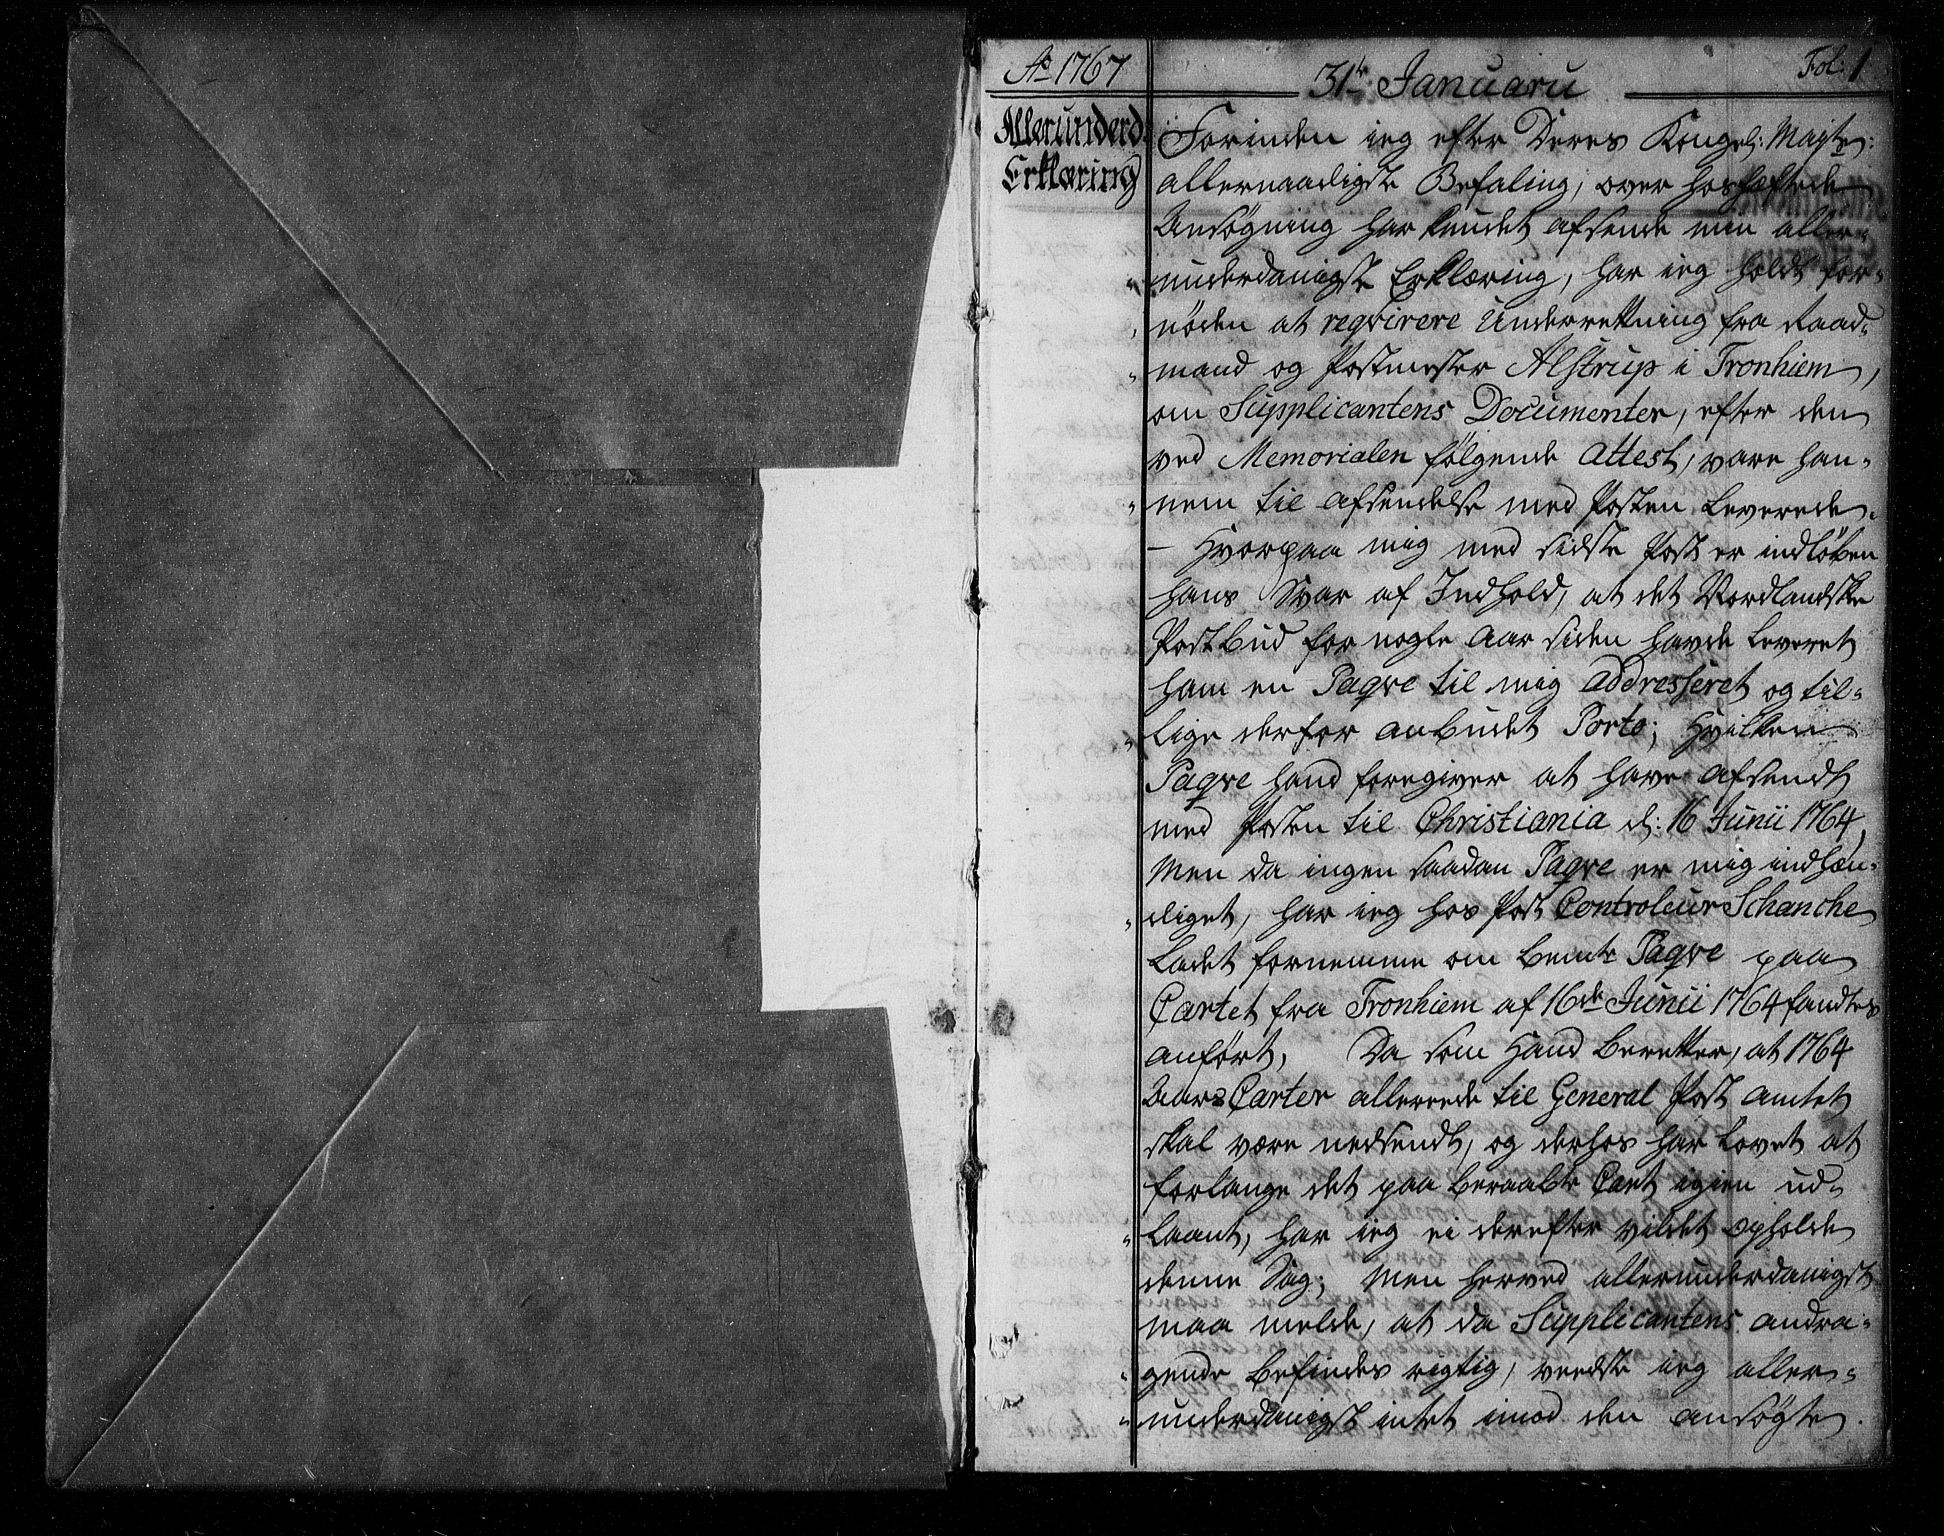 Ao 1767
31te Januarii
Fol: 1
Allerunderd:
Erklæring
Forinden ieg efter Deres Kongel: Mayts:
allernaadigste Befaling, over hoshæftede
Ansøgning har kundet afsende min aller-
underdanigste Erklæring, har ieg holdt for-
nøden at reqvirere Underretning fra Raad-
mand og Postmester Alstrup i Tronhiem,
om Supplicantens Documenter, efter den
ved Memorialen følgende Attest, vare han-
nem til afsendelse med Posten Leverede.
- Hvorpaa mig med sidste Post er indløben
hans Svar af Indhold, at det Nordlandske
Postbud for nogle Aar siden havde Leveret
ham en Paqve til mig Addresseret og til-
lige derfor anbudet Porto; Hvilken
Paqve hand foregiver at have afsendt
med Posten til Christiania d: 16 Junii 1764,
Men da ingen saadan Paqve er mig indhæn-
diget, har ieg hos Post Controleur Schanche
Ladet fornemme om bemte Paqve paa
Cartet fra Tronhiem af 16de Junii 1764 fandtes
anført, Da som Hand Beretter, at 1764
Aars Carter allerede til General Post Amtet
skal være nedsendt, og derhos har Lovet at
forlange det paa beraabte Cart igien ud-
laant, har ieg ei derefter vildet opholde
denne Sag; Men herved allerunderdanigst
maa melde, at da Supplicantens andra-
gende Befindes rigtig, veedste ieg aller-
underdanigst intet imod den ansøgte